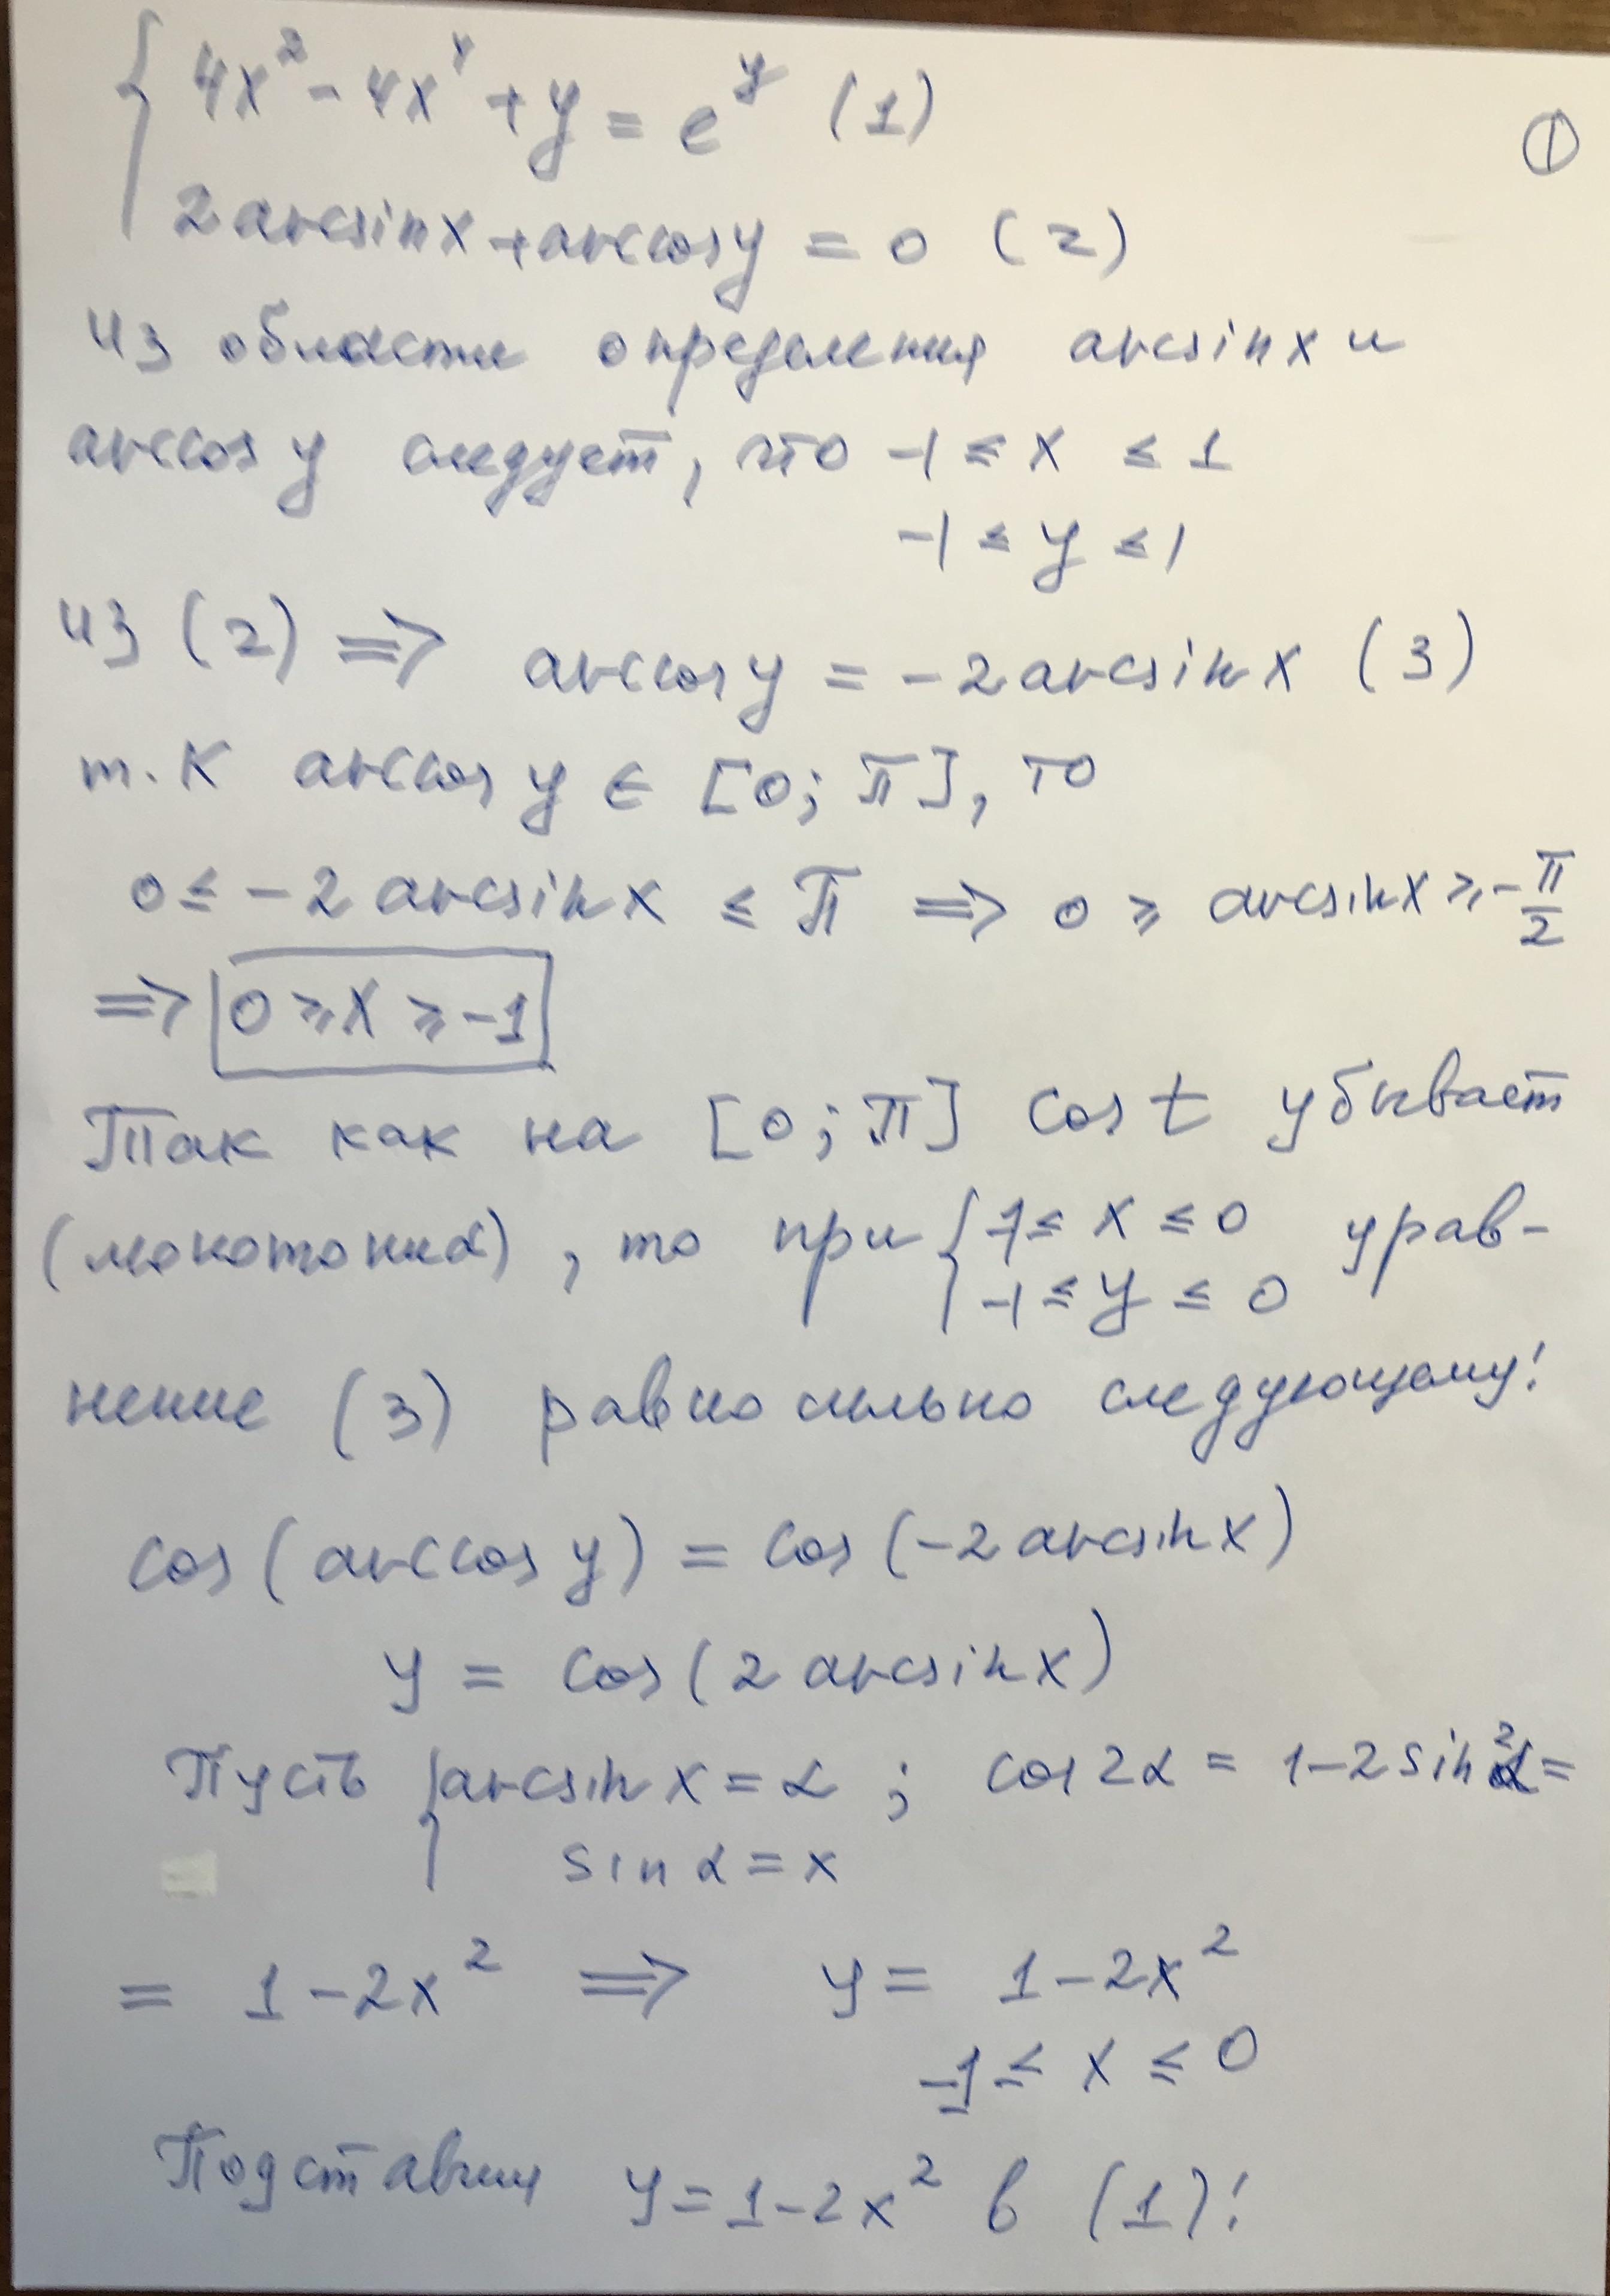 { 4x² - 4x⁴ + y = e^y (1)
①
2arcsinx + arccosy = 0 (2)
Из области определения arcsinx и
arccos y следует, что -1 ≤ x ≤ 1
-1 ≤ y ≤ 1
из (2) ⇒ arccosy = -2arcsinx (3)
т.к arccos y ∈ [0; π], то
0 ≤ -2 arcsinx ≤ π ⇒ 0 ≥ arcsinx ≥ -π/2
⇒ 0 ≥ x ≥ -1
Так как на [0; π] cos t убывает
(монотонна), то при { -1 ≤ x ≤ 0 урав-
-1 ≤ y ≤ 0
нение (3) равносильно следующему:
cos(arccos y) = cos(-2arcsinx)
y = cos(2arcsinx)
Пусть { arcsin x = α ; cos2α = 1-2sin²α =
sin α = x
= 1 - 2x² ⇒ y = 1 - 2x²
-1 ≤ x ≤ 0
Подставим y = 1-2x² в (1):